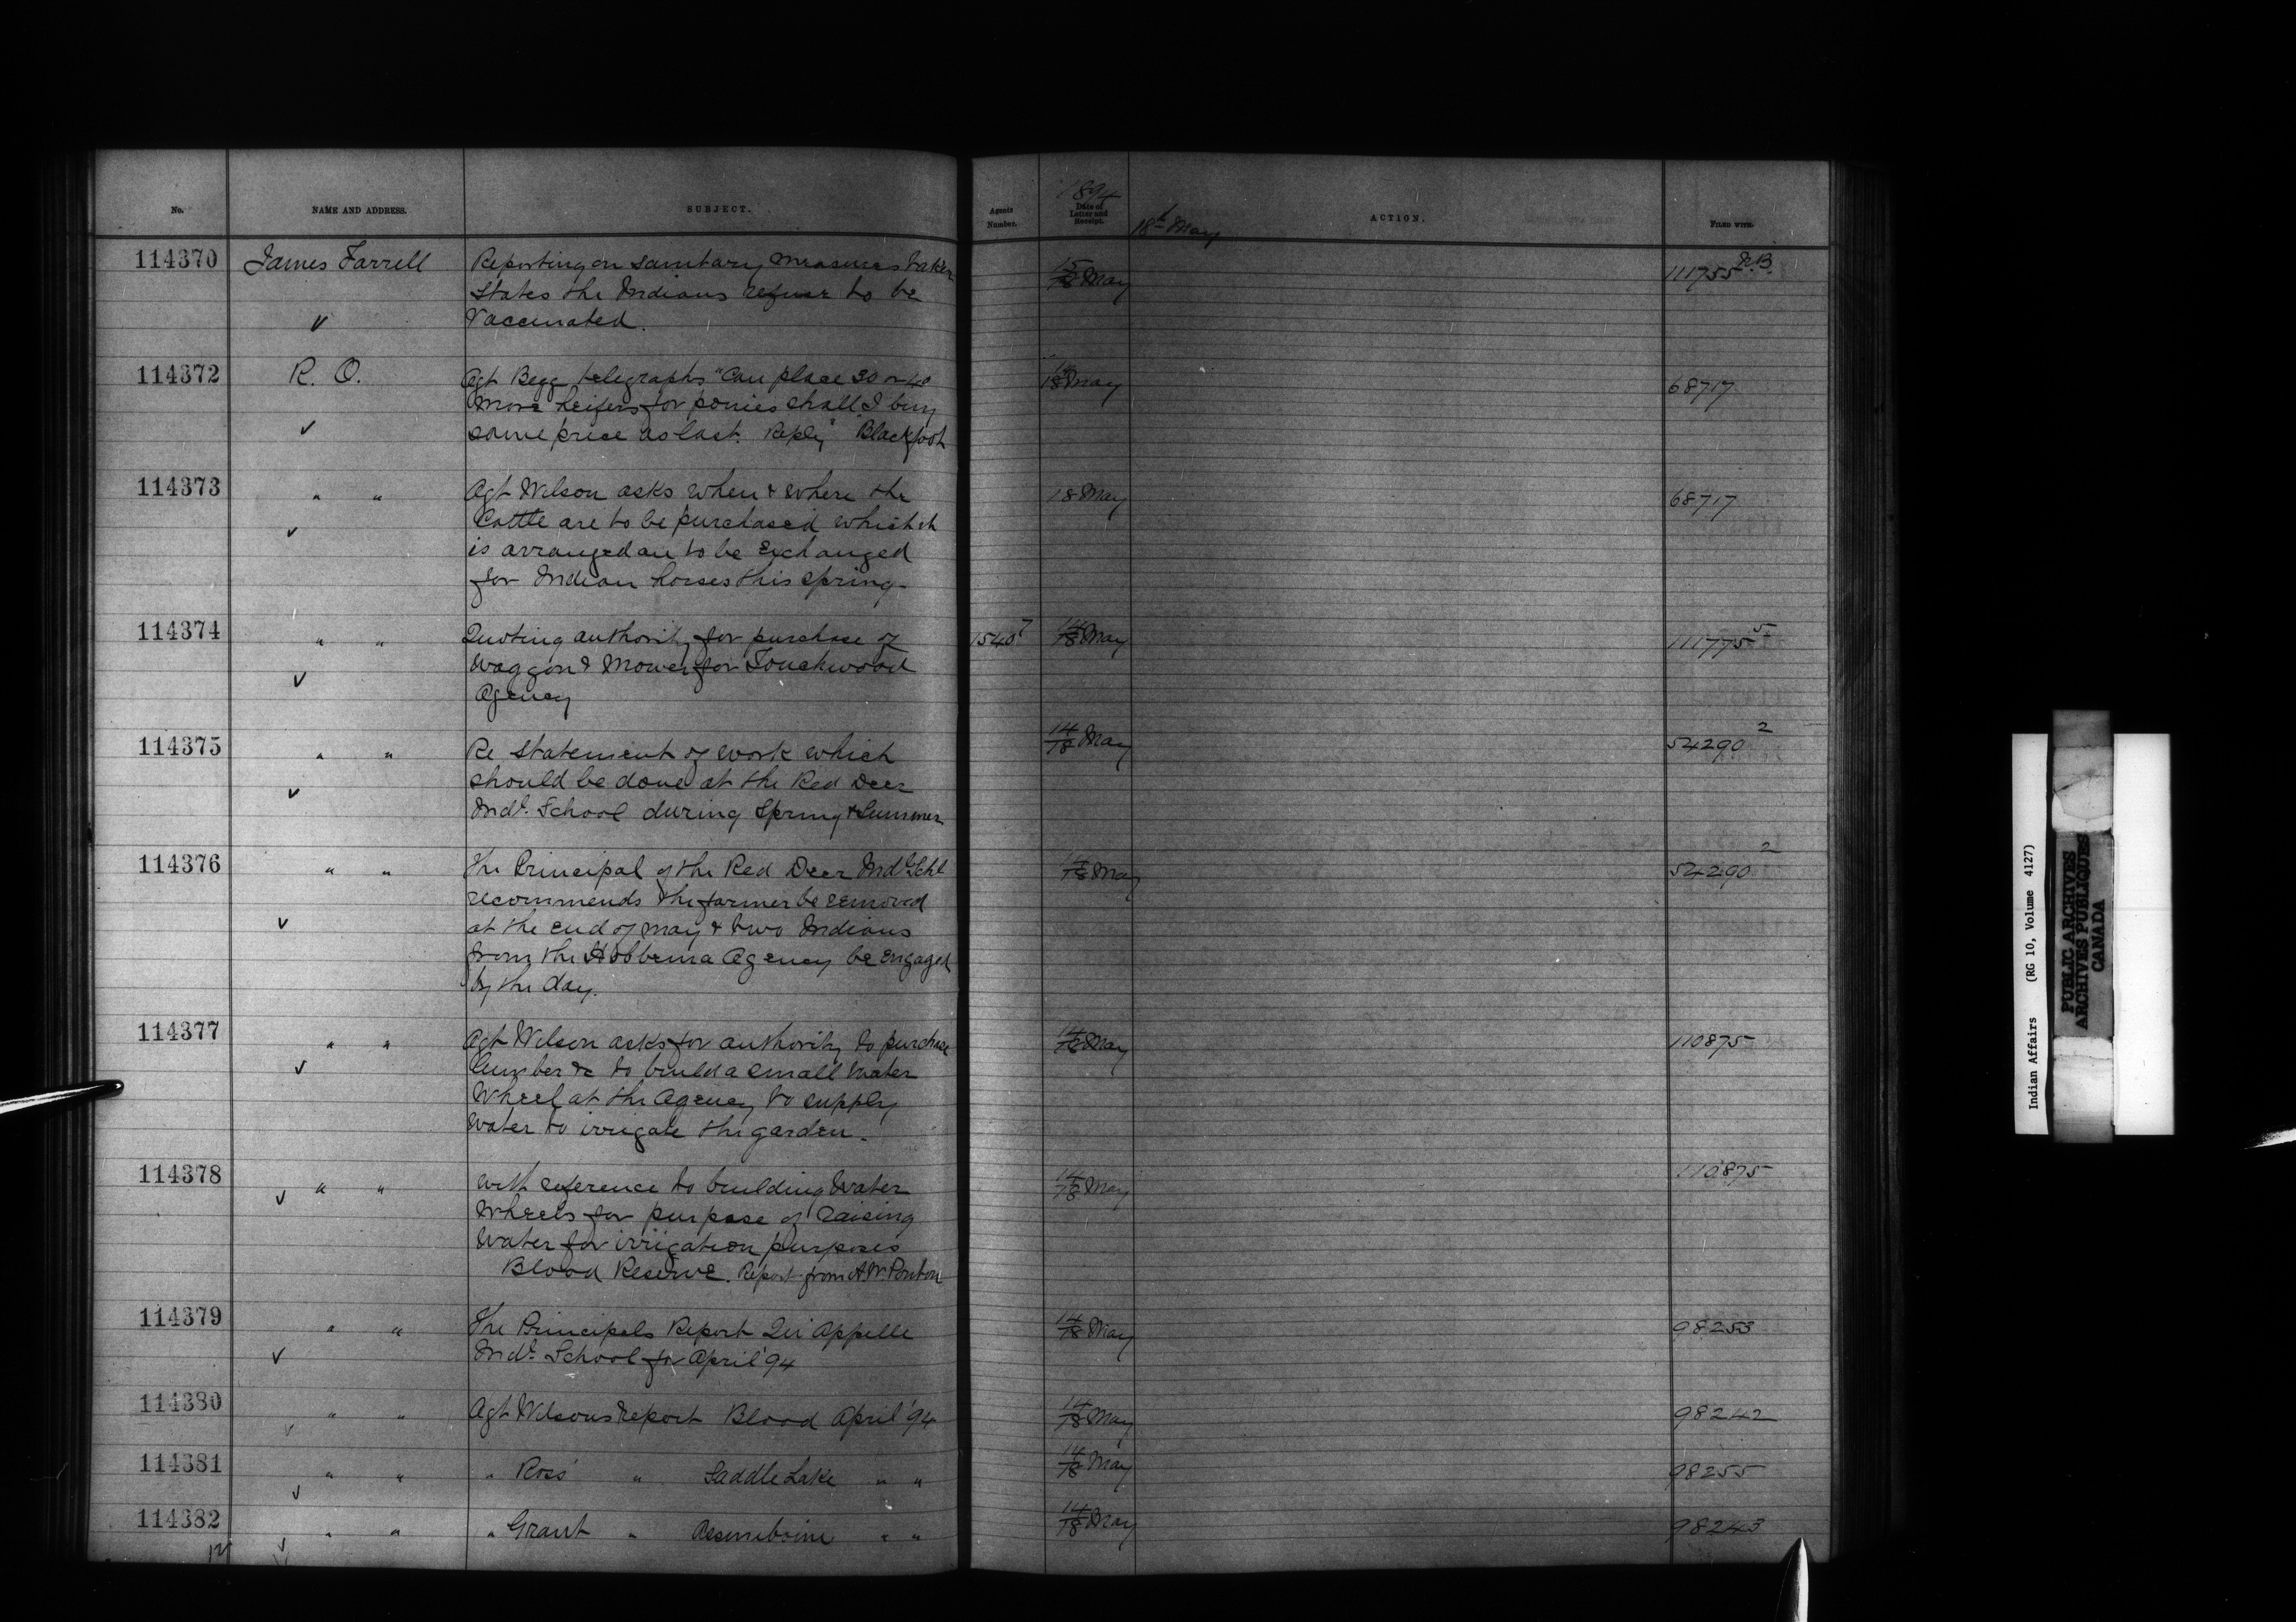 No.
NAME AND ADDRESS.
SUBJECT.
Agents Number.
1894
Date of Letter and Receipt.
18th May
ACTION.
FILED WITH.
114370 James Farrell Reporting on sanitary measures taken 15/18 May 111755 N.B.
States the Indians refuse to be
Vaccinated.
114372 R. O. Agt Begg telegraphs "Can place 30 or 40 14/18 May 68717
more heifers for ponies shall I buy
same price as last. Reply" Blackfoot
114373 " " Agt Wilson asks when & where the 18 May 68717
Cattle are to be purchased which it
is arranged are to be Exchanged
for Indian horses this spring.
114374 " " Quoting authority for purchase of 1540 7 14/18 May 111775 5
Waggon & Mower for Touchwood
Agency
114375 " " Re Statement of work which 14/18 May 54290 2
should be done at the Red Deer
Indl. School during Spring & Summer
114376 " " The Principal of the Red Deer Indl. Schl 14/18 May 54290 2
recommends the farmer be removed
at the end of may & two Indians
from the Hobbema Agency be engaged
by the day.
114377 " " Agt Wilson asks for authority to purchase 14/18 May 110875
lumber &c to build a small water
Wheel at the Agency to supply
water to irrigate the garden.
114378 " " With reference to building Water 14/18 May 110875
Wheels for purpose of raising
Water for irrigation purposes
Blood Reserve. Report from A.W. Ponton
114379 " " The Principals Report Qu'Appelle 14/18 May 98253
Indl. School for April '94
114380 " " Agt Wilsons report Blood April '94 14/18 May 98242
114381 " " " Ross' " Saddle Lake " " 14/18 May 98255
114382 " " " Grant " Assiniboine " " 14/18 May 98243
Indian Affairs (RG 10, Volume 4127)
PUBLIC ARCHIVES
ARCHIVES PUBLIQUES
CANADA